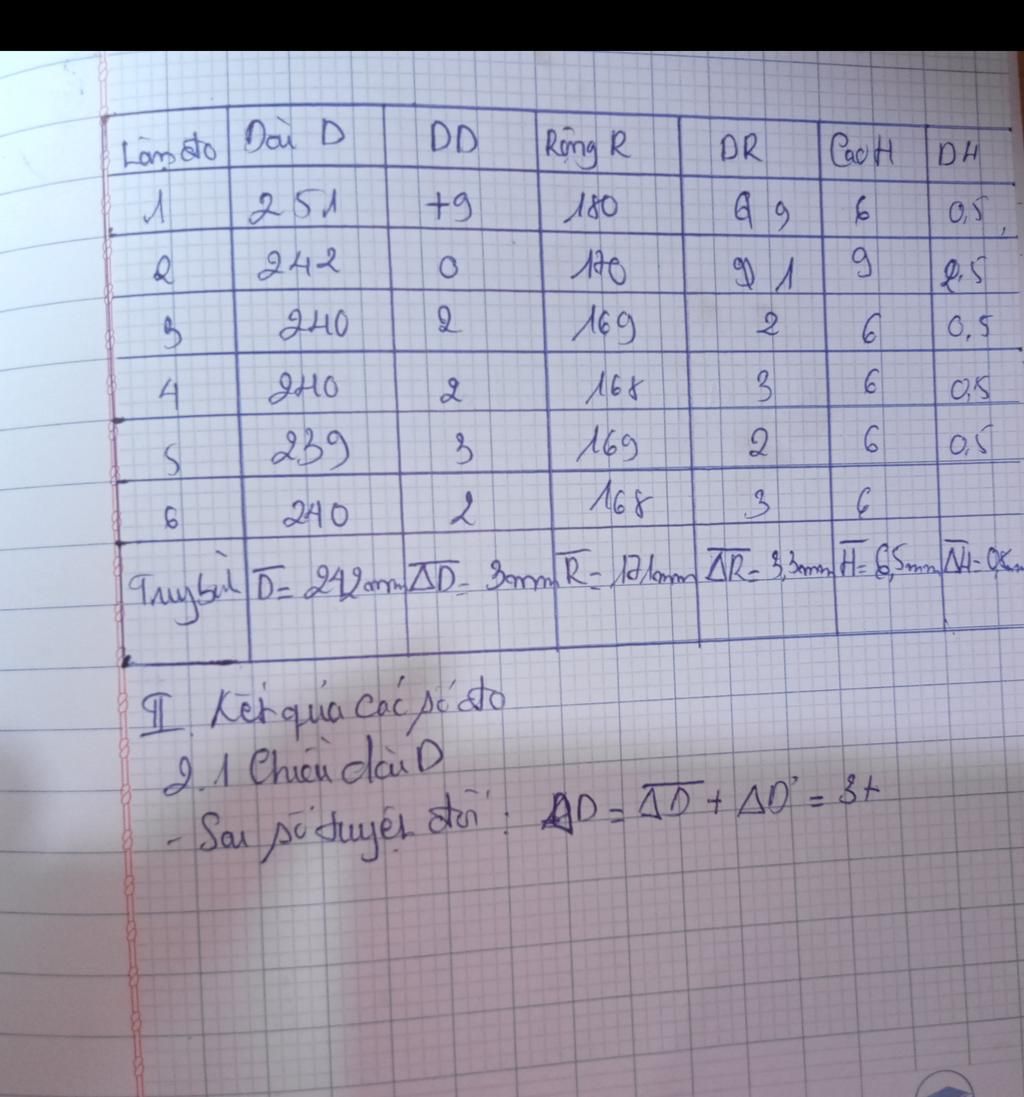 Lần đo Dài D DD Rộng R DR Cao H DH
1 251 +9 180 9 6 0,5
2 242 0 170 1 9 2.5
3 240 2 169 2 6 0,5
4 240 2 168 3 6 0,5
5 239 3 169 2 6 0.5
6 240 2 168 3 6
D̅ = 242mm Δ̅D̅ = 3mm R̅ = 171mm Δ̅R̅ = 3,3mm H̅ = 6,5mm
II Kết quả các số đo
2.1 Chiều dài D
- Sai số tuyệt đối : ΔD = Δ̅D̅ + ΔD' = 3+